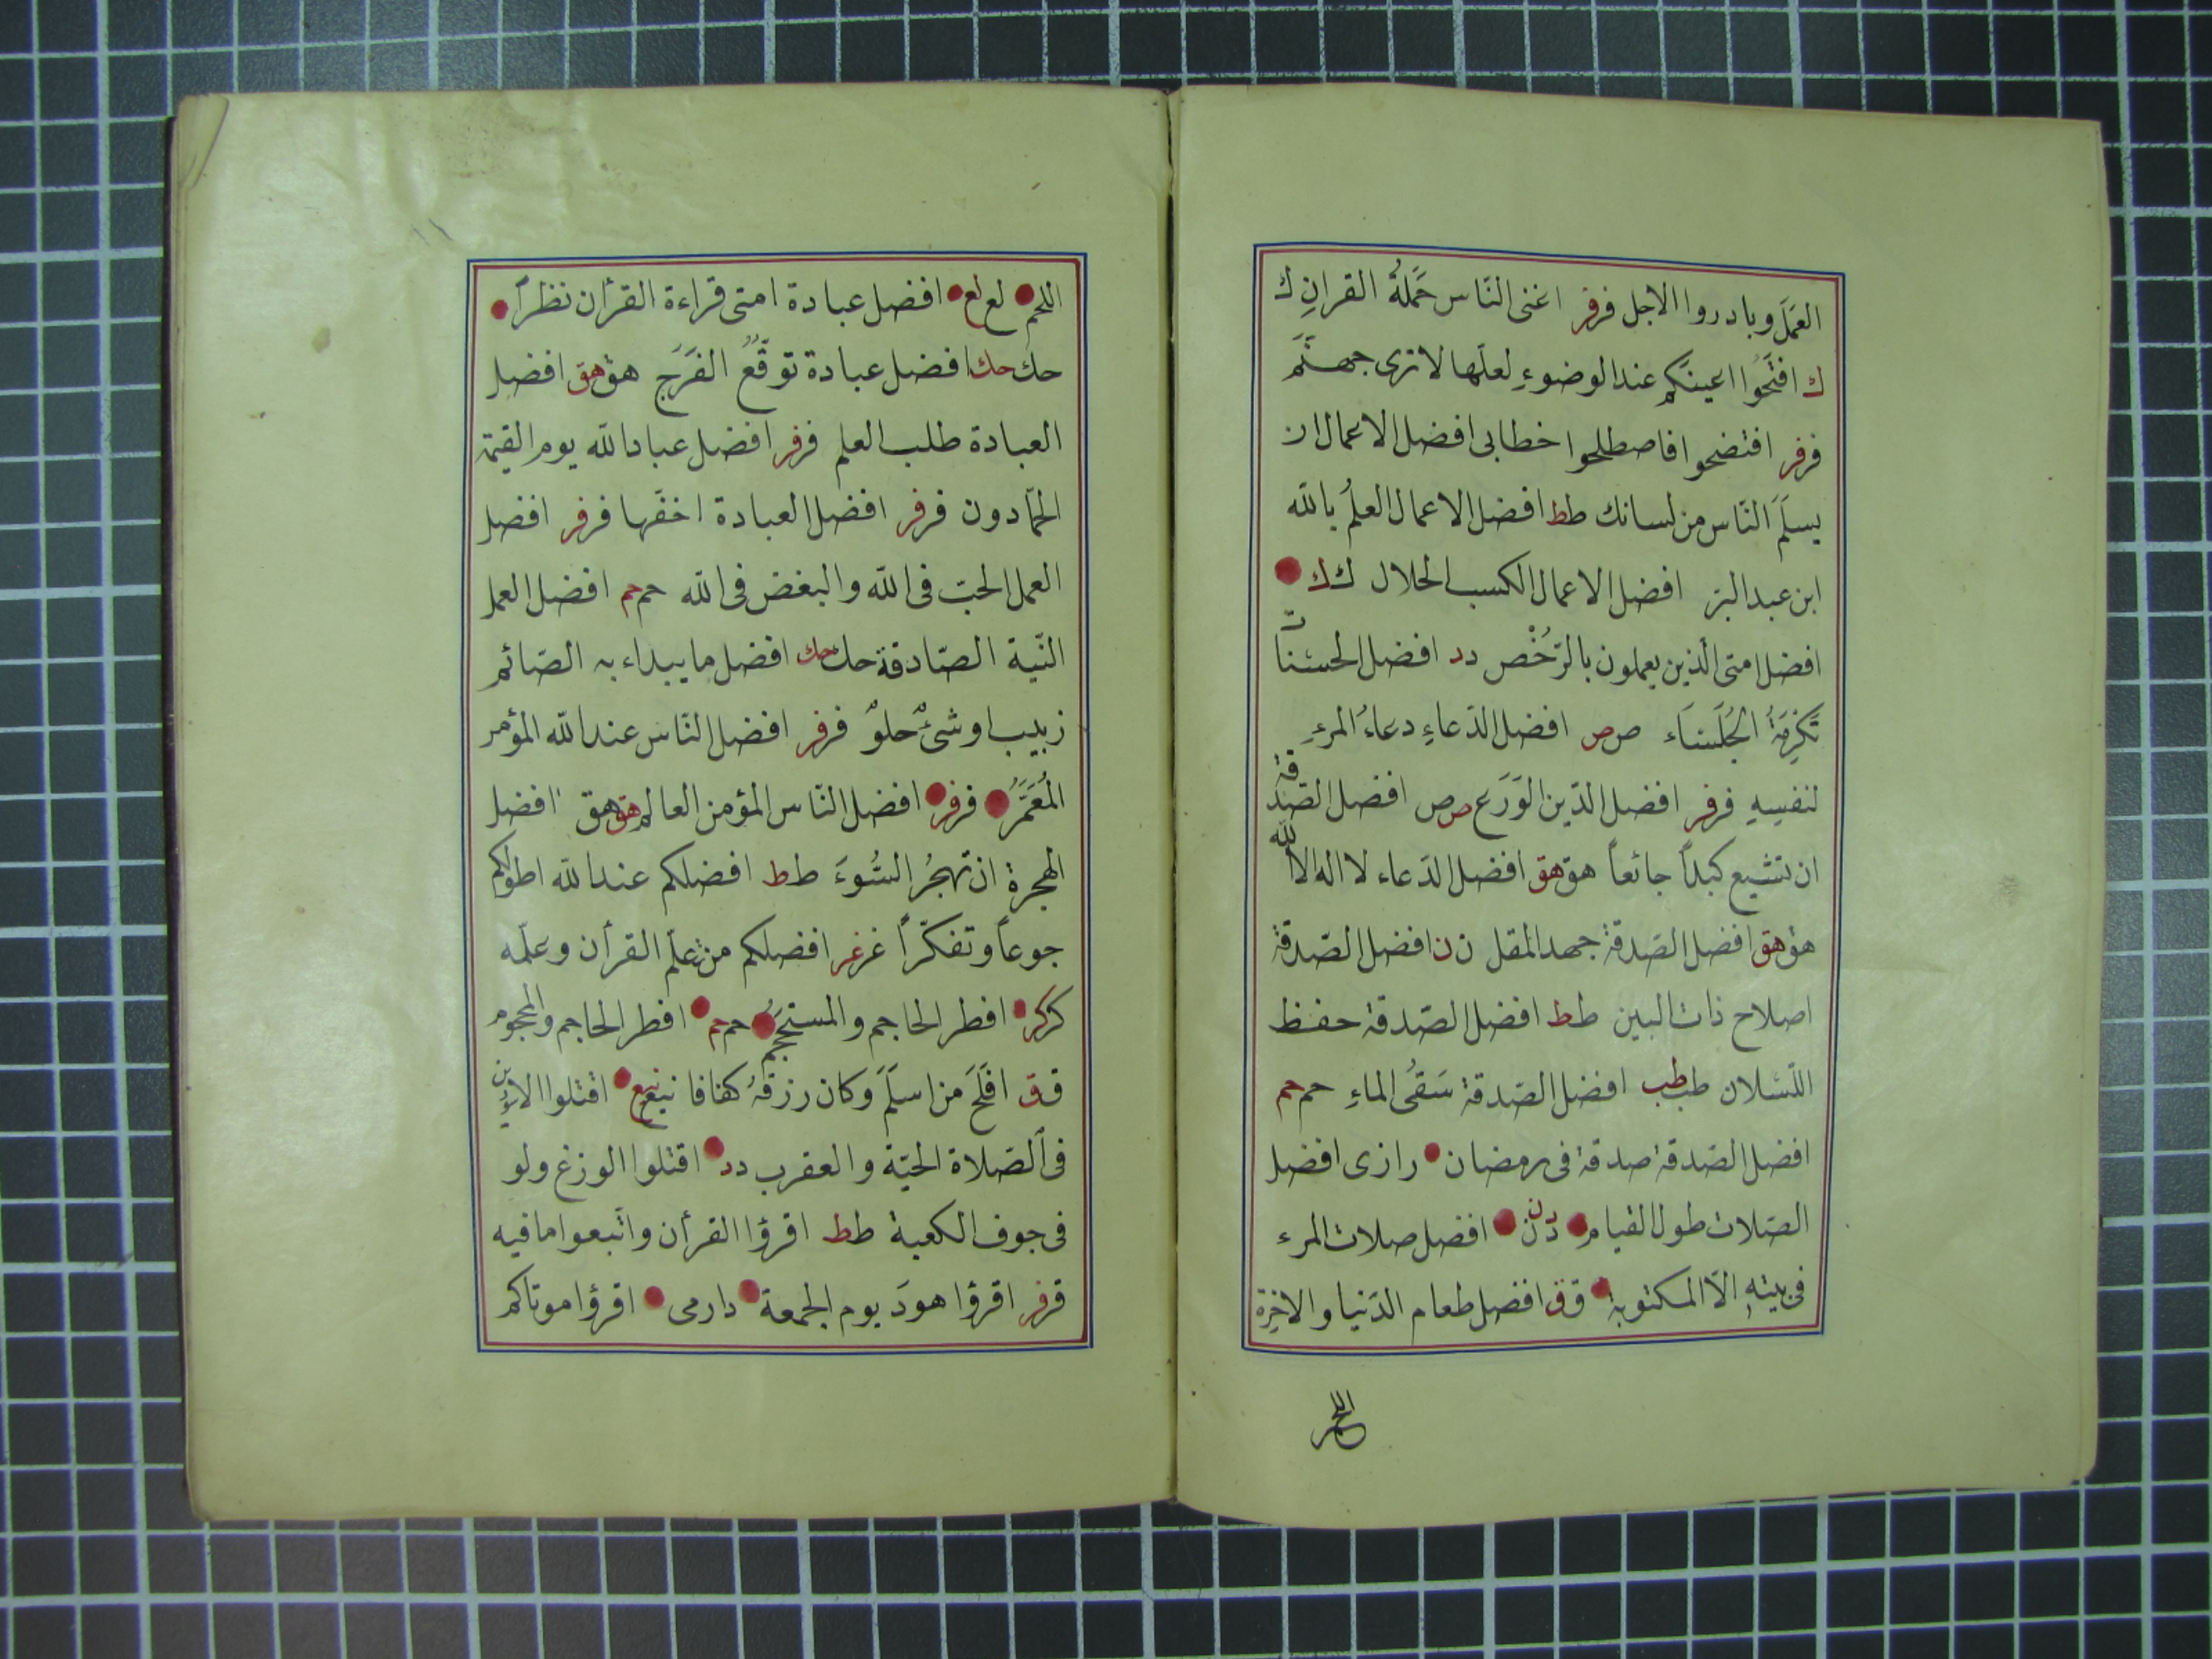 العَمَلَ وبادروا الاجل فرفر اغنى النّاس حَمَلَةُ القرانِ ك
ك افتَحُوا اعينكم عند الوضوءِ لعلّها لا ترى جهنَّم
فرفر افتضحوا فاصطلحوا خطابى افضل الاعمال ان
يسلَمَ النّاس من لسانك طط افضل الاعمال العلمُ بالله
ابن عبد البرّ افضل الاعمال الكسب الحلال كك
افضل امتى الّذين يعملون بالرُّخْص دد افضل الحسنات
تَكْرِمَةُ الجُلَسَاء صص افضل الدّعاءِ دعاءُ المرءِ
لنفسِهِ فرفر افضل الدّين الوَرَع صص افضل الصّدقة
ان تشبع كبداً جائعاً هق هق افضل الدّعاء لا اله الا الله
هق هق افضل الصّدقة جهد المقل ن ن افضل الصّدقة
اصلاح ذات البين طط افضل الصّدقة حفظ
اللّسلان طب طب افضل الصّدقة سَقْىُ الماءِ حم حم
افضل الصّدقة صدقة فى رمضان رازى افضل
الصّلات طول القيام دن دن افضل صلات المرء
فى بيتهِ الّا المكتوبة قق افضل طعام الدّنيا والاخِرة
اللحم
اللحم لع لع افضل عبادة امتى قراءة القرأن نظراً
حك حك افضل عبادة توقُّعُ الفَرَجِ هق هق افضل
العبادة طلب العلم فرفر افضل عباد الله يوم القيمة
الحمّادون فرفر افضل العبادة اخفّها فرفر افضل
العمل الحبّ فى الله والبغض فى الله حم حم افضل العمل
النّية الصّادقة حك حك افضل ما يبداء به الصّائم
زبيب او شىءٌ حلوٌ فرفر افضل النّاس عند الله المؤمر
المُعَمَّرُ فرفر افضل النّاس المؤمن العالم هق هق افضل
الهجرة ان تهجُر السُّوءَ طط افضلكم عند الله اطولكم
جوعاً وتفكّراً غرغر افضلكم من تعلّم القرأن وعلّمه
كركر افطر الحاجم والمستحجم حم حم افطر الحاجم والمحجوم
قق افلَحَ من اسلَمَ وكان رزقهُ كفافا نيع نيع اقتلوا الاسودين
فى الصّلاة الحيّة والعقرب دد اقتلوا الوزغ ولو
فى جوف الكعبة طط اقرؤا القرأن واتّبعوا ما فيه
قرفر اقرؤا هودَ يوم الجمعة دارمى اقرؤا موتاكم